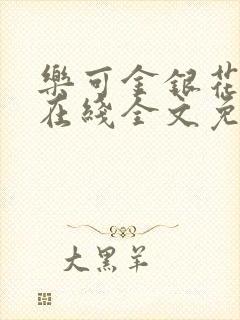 樂可金銀花
在綫全文免
大黑羊